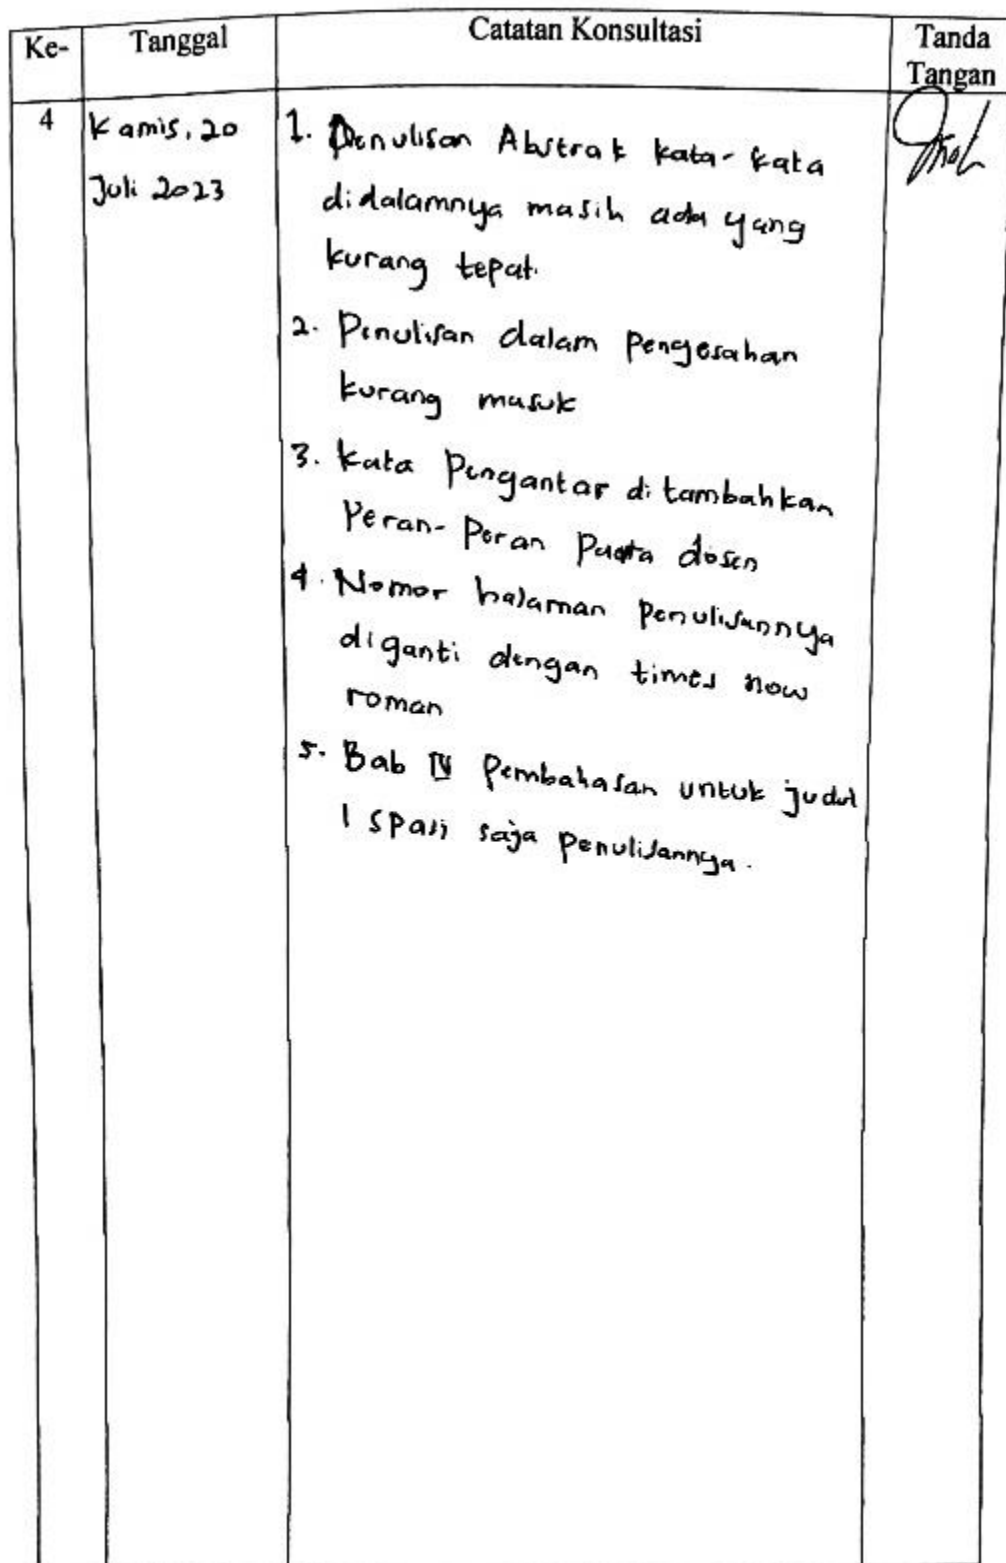 Ke- Tanggal Catatan Konsultasi Tanda
Tangan
4 Kamis, 20 1. Penulisan Abstrak kata-kata
Juli 2023 didalamnya masih ada yang
kurang tepat.
2. Penulisan dalam pengesahan
kurang masuk
3. kata Pengantar ditambahkan
Peran-Peran dosen
4. Nomor halaman penulisannya
diganti dengan times now
roman
5. Bab IV Pembahasan untuk judul
1 spasi saja penulisannya.